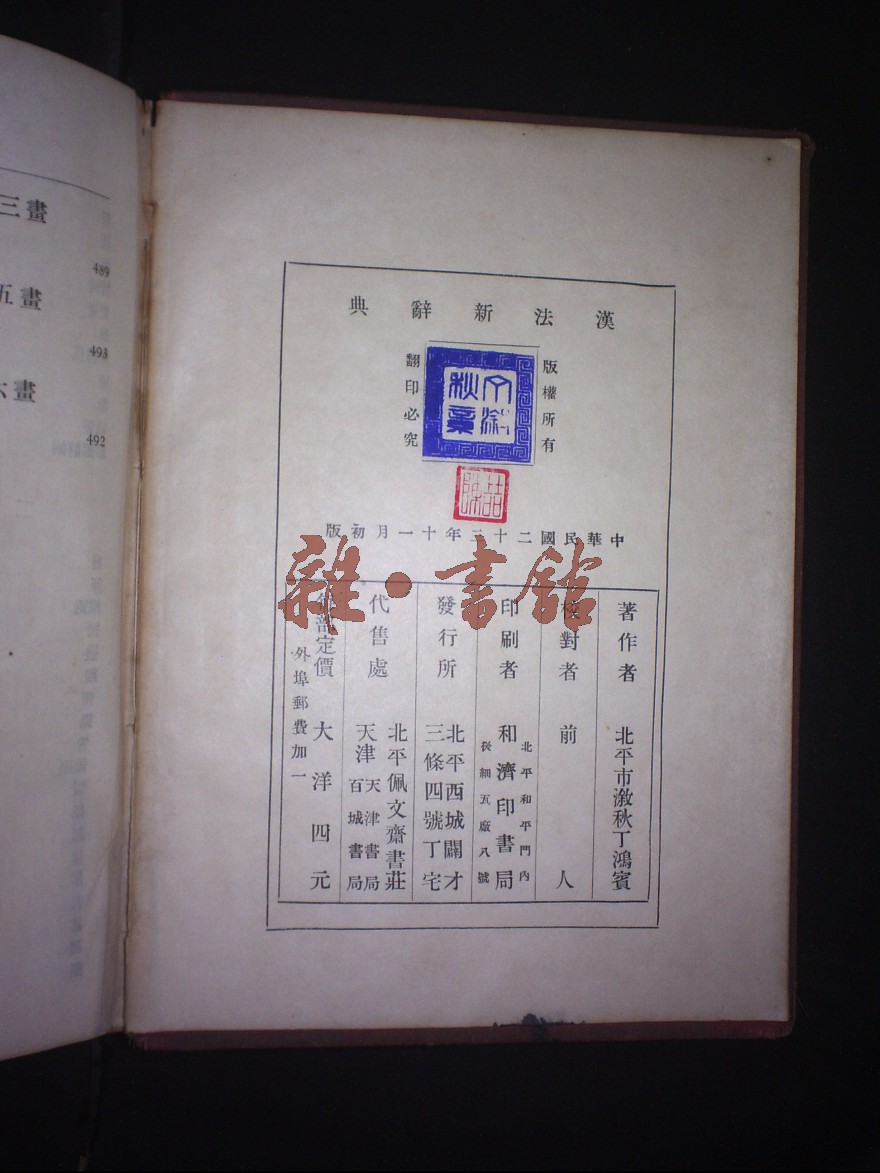 漢法新辭典
版權所有
翻印必究
中華民國二十三年十一月初版
著作者 北平市潋秋丁鴻賓
校對者 前人
印刷者 和濟印書局
北平和平門內
後細瓦廠八號
發行所 北平西城闢才
三條四號丁宅
代售處 北平佩文齋書莊
天津 天津書局
百城書局
每部定價 大洋四元
外埠郵費加一
三畫
489
五畫
493
六畫
492
雜·書館